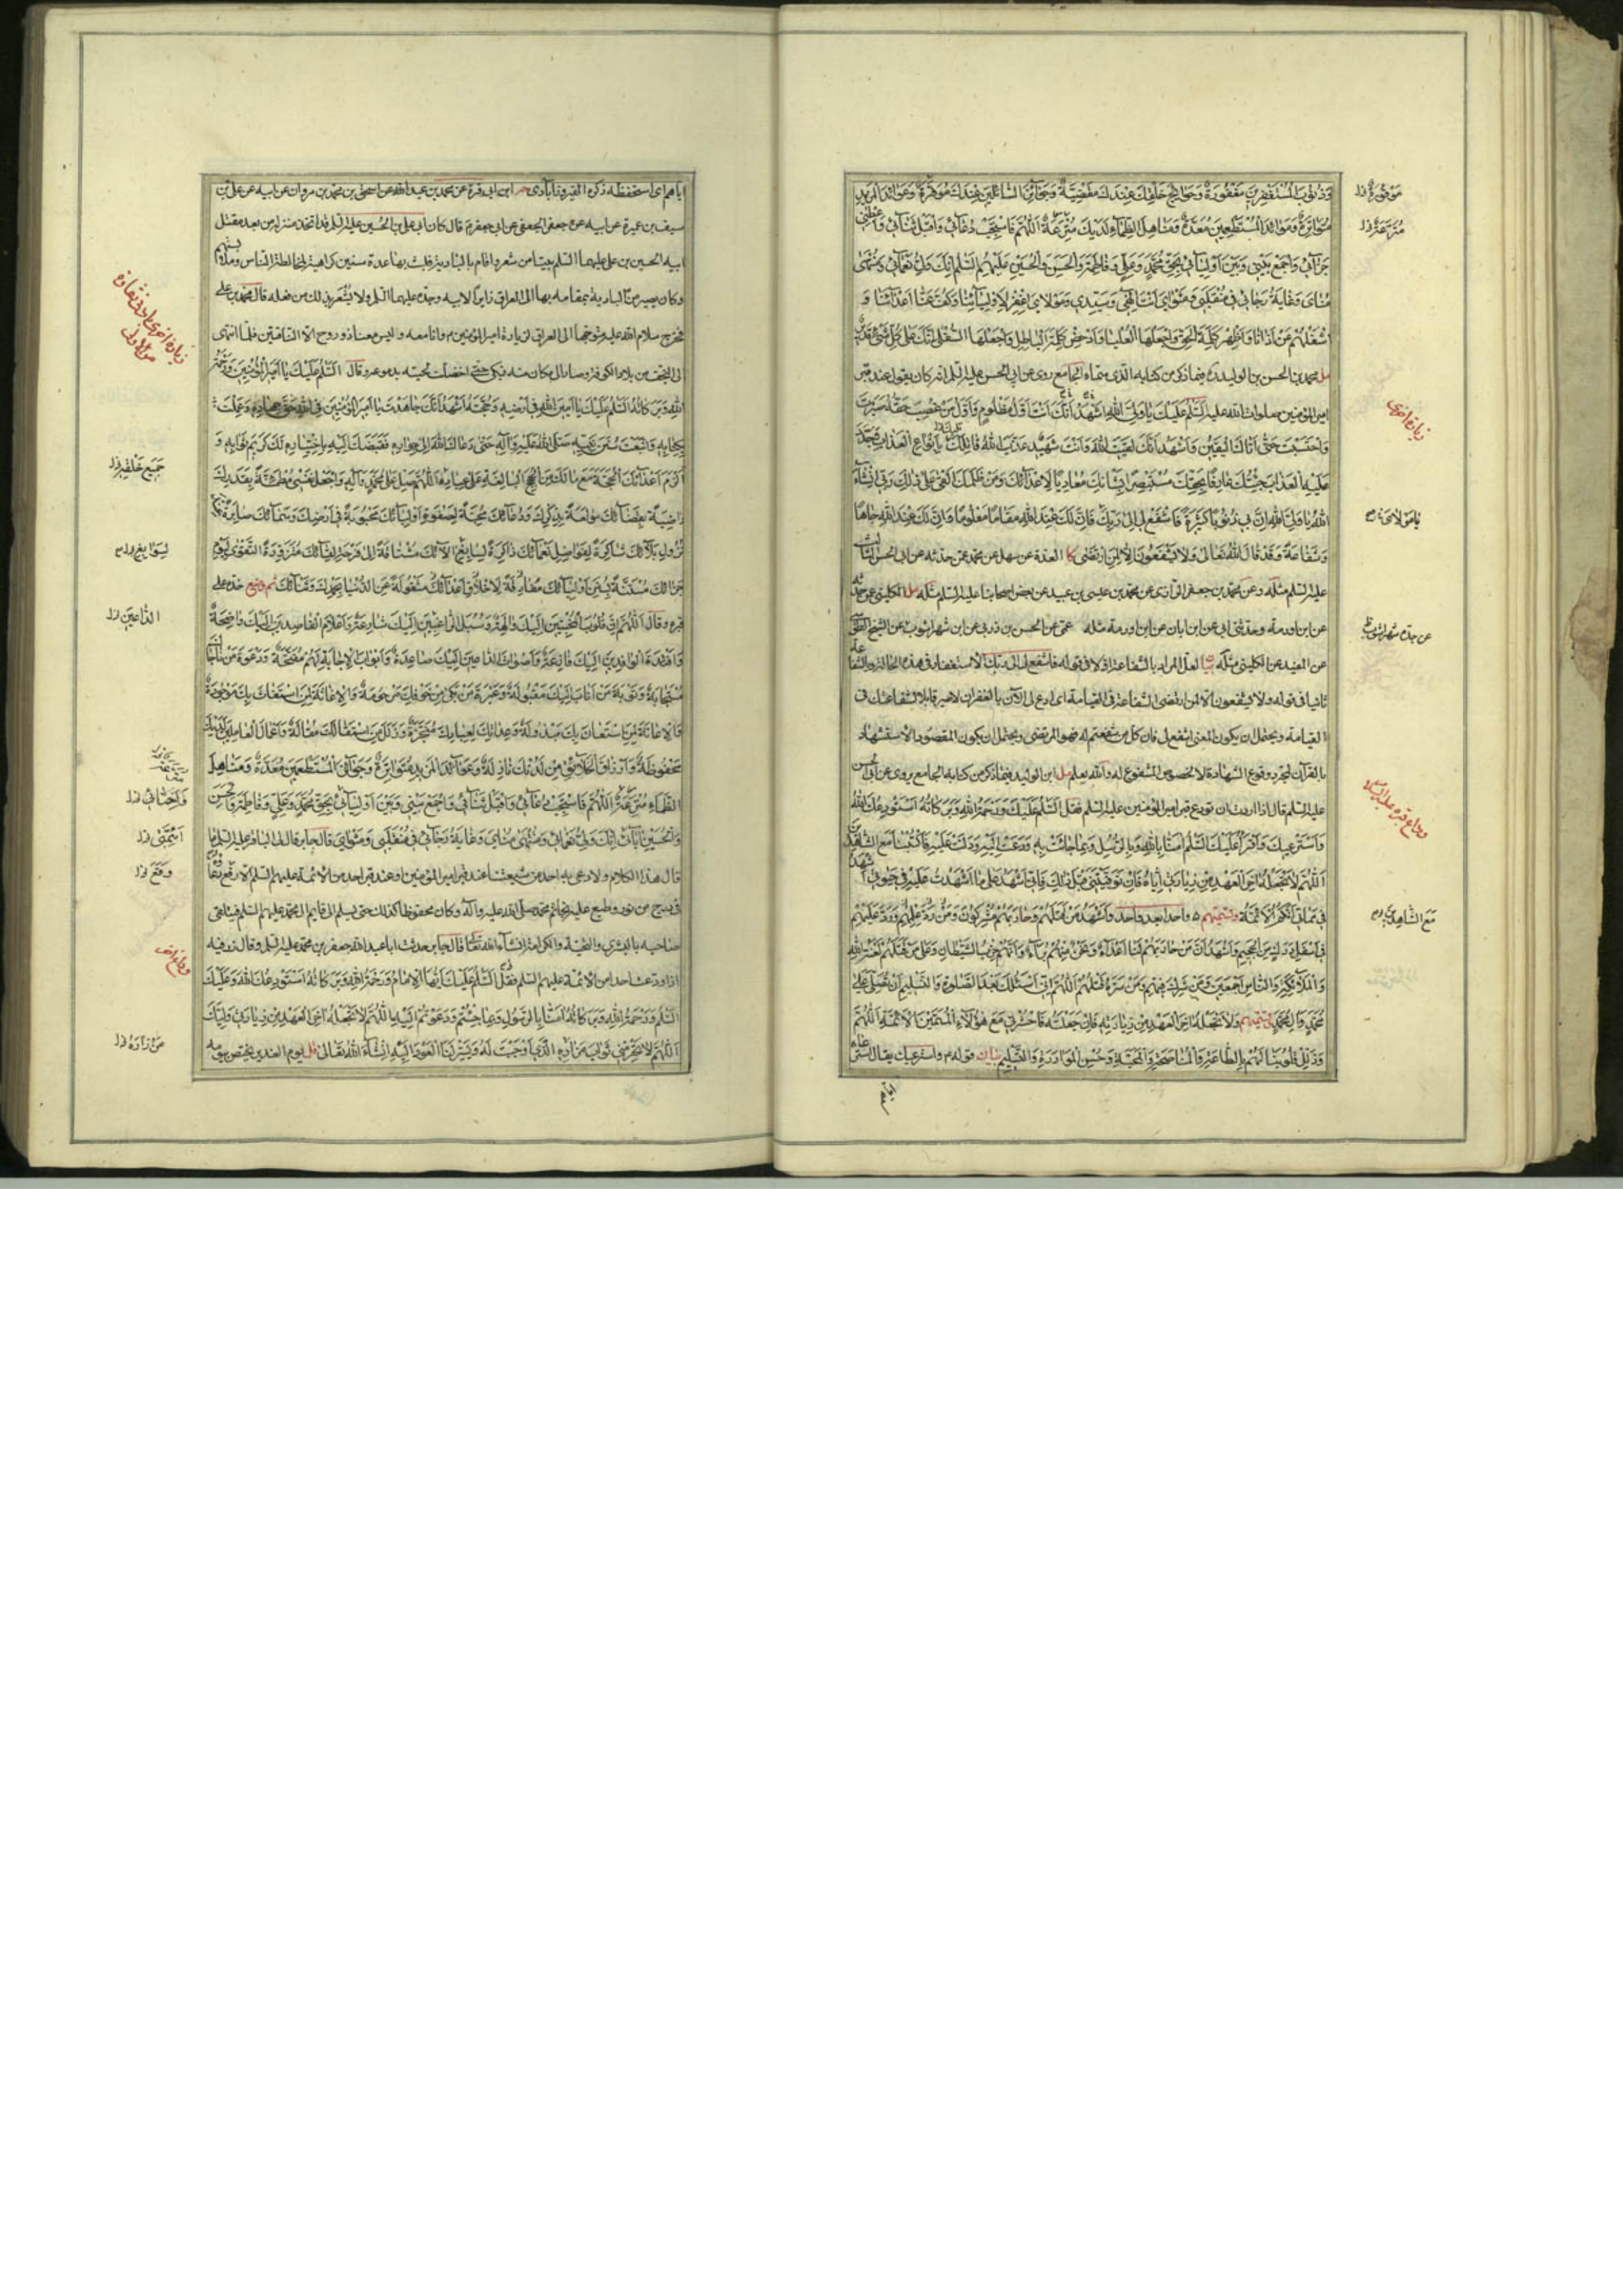 وَذُنُوبَ المُسْتَغْفِرِينَ مَغْفُورَةٌ وَحَوَائِجَ خَلْقِكَ عِنْدَكَ مَقْضِيَّةٌ وَجَوَائِزَ السَّائِلِينَ عِنْدَكَ مُوَفَّرَةٌ وَعَوَائِدَ المَزِيدِ
مُتَوَاتِرَةٌ وَمَوَائِدَ المُسْتَطْعِمِينَ مُعَدَّةٌ وَمَنَاهِلَ الظِّمَاءِ لَدَيْكَ مُتْرَعَةٌ اَللّٰهُمَّ فَاسْتَجِبْ دُعَائِي وَاقْبَلْ ثَنَائِي وَأَعْطِنِي
جَزَائِي وَاجْمَعْ بَيْنِي وَبَيْنَ أَوْلِيَائِي بِحَقِّ مُحَمَّدٍ وَعَلِيٍّ وَفَاطِمَةَ وَالحَسَنِ وَالحُسَيْنِ عَلَيْهِمُ السَّلَامُ إِنَّكَ وَلِيُّ نَعْمَائِي وَمُنْتَهَى
مُنَايَ وَغَايَةُ رَجَائِي فِي مُنْقَلَبِي وَمَثْوَايَ أَنْتَ إِلٰهِي وَسَيِّدِي وَمَوْلَايَ اغْفِرْ لِأَوْلِيَائِنَا وَكُفَّ عَنَّا أَعْدَائَنَا وَ
اشْغَلْهُمْ عَنْ أَذَانَا وَأَظْهِرْ كَلِمَةَ الحَقِّ وَاجْعَلْهَا العُلْيَا وَأَدْحِضْ كَلِمَةَ البَاطِلِ وَاجْعَلْهَا السُّفْلَى إِنَّكَ عَلَى كُلِّ شَيْءٍ قَدِيرٌ
مل محمد بن الحسن بن الوليد ره فيما ذكر من كتابه الذى سماه الجامع روى عن ابى الحسن عليه السلم انه كان يقول عند قبر
امير المؤمنين صلوات الله عليه اَلسَّلَامُ عَلَيْكَ يَا وَلِيَّ اللهِ اَشْهَدُ اَنَّكَ اَنْتَ اَوَّلُ مَظْلُومٍ وَاَوَّلُ مَنْ غُصِبَ حَقُّهُ صَبَرْتَ
وَاحْتَسَبْتَ حَتَّى اَتَاكَ اليَقِينُ وَاَشْهَدُ اَنَّكَ لَقِيتَ اللهَ وَاَنْتَ شَهِيدٌ عَذَّبَ اللهُ قَاتِلَكَ بِاَنْوَاعِ العَذَابِ وَجَدَّدَ
عَلَيْهِ العَذَابَ جِئْتُكَ عَارِفًا بِحَقِّكَ مُسْتَبْصِرًا بِشَانِكَ مُعَادِيًا لِاَعْدَائِكَ وَمَنْ ظَلَمَكَ اَلْقَى عَلَى ذٰلِكَ رَبِّي اِنْ شَآءَ
اللهُ يَا وَلِيَّ اللهِ اِنَّ لِي ذُنُوبًا كَثِيرَةً فَاشْفَعْ لِي اِلَى رَبِّكَ فَاِنَّ لَكَ عِنْدَ اللهِ مَقَامًا مَعْلُومًا وَاِنَّ لَكَ عِنْدَ اللهِ جَاهًا
وَشَفَاعَةً وَقَدْ قَالَ اللهُ تَعَالَى وَلَا يَشْفَعُونَ اِلَّا لِمَنِ ارْتَضَى كا العدة عن سهل عن محمد عمن حدثه عن ابى الحسن الثالث
عليه السلم مثله وعن محمد بن جعفر الرازى عن محمد بن عيسى بن عبيد عن بعض اصحابنا عليه السلم مثله مل الكلينى عمن حدثه
عن ابن اورمة وحدثنى ابى عن ابن ابان عن ابن اورمة مثله
عن المفيد عن الكلينى مثله بيان لعل المراد بالشفاعة اولا فى قوله فاشفع لى الى ربك الاستغفار فى هذه الحالة وبالشفاعة
ثانيا فى قوله ولا يشفعون الا لمن ارتضى الشفاعة فى القيامة اى ادع لى الآن بالغفران لاصير قابلا لشفاعتك فى
القيامة ويحتمل ان يكون المعنى اشفع لى فان كل من شفعتم له فهو المرتضى ويحتمل ان يكون المقصود الاستشهاد
بالقرآن لمجرد وقوع الشهادة لا لخصوص المشفوع له والله يعلم مل ابن الوليد فيما ذكر من كتابه الجامع يروى عن ابى الحسن
عليه السلم قال اذا اردت ان تودع قبر امير المؤمنين عليه السلم فقل اَلسَّلَامُ عَلَيْكَ وَرَحْمَةُ اللهِ وَبَرَكَاتُهُ اَسْتَوْدِعُكَ اللهَ
وَاَسْتَرْعِيكَ وَاَقْرَأُ عَلَيْكَ السَّلَامَ آمَنَّا بِاللهِ وَبِالرُّسُلِ وَبِمَا جَائَتْ بِهِ وَدَعَتْ اِلَيْهِ وَدَلَّتْ عَلَيْهِ فَاكْتُبْنَا مَعَ الشَّاهِدِينَ
اَللّٰهُمَّ لَا تَجْعَلْهُ آخِرَ العَهْدِ مِنْ زِيَارَتِي اِيَّاهُ فَاِنْ تَوَفَّيْتَنِي قَبْلَ ذٰلِكَ فَاِنِّي اَشْهَدُ عَلَى مَا شَهِدْتُ عَلَيْهِ فِي حَيَوتِي اَشْهَدُ
فِي مَمَاتِي اَنَّكُمُ الاَئِمَّةُ وتسميهم واحدا بعد واحد وَاَشْهَدُ اَنَّ مَنْ قَتَلَهُمْ وَحَارَبَهُمْ مُشْرِكُونَ وَمَنْ رَدَّ عَلَيْهِمْ
فِي اَسْفَلِ دَرَكٍ مِنَ الجَحِيمِ وَاَشْهَدُ اَنَّ مَنْ حَارَبَهُمْ لَنَا اَعْدَآءٌ وَنَحْنُ مِنْهُمْ بُرَآءٌ وَاَنَّهُمْ حِزْبُ الشَّيْطَانِ وَعَلَى مَنْ قَتَلَهُمْ لَعْنَةُ اللهِ
وَالمَلَائِكَةِ وَالنَّاسِ اَجْمَعِينَ وَمَنْ شَرِكَ فِيهِمْ وَمَنْ سَرَّهُ قَتْلُهُمْ اَللّٰهُمَّ اِنِّي اَسْئَلُكَ بَعْدَ الصَّلَوةِ وَالتَّسْلِيمِ اَنْ تُصَلِّيَ عَلَى
مُحَمَّدٍ وَآلِ مُحَمَّدٍ وتسميهم وَلَا تَجْعَلْهُ آخِرَ العَهْدِ مِنْ زِيَارَتِهِ فَاِنْ جَعَلْتَهُ فَاحْشُرْنِي مَعَ هٰؤُلَآءِ المُسَمَّيْنَ الاَئِمَّةِ اَللّٰهُمَّ
وَذَلِّلْ قُلُوبَنَا لَهُمْ بِالطَّاعَةِ وَالمُنَاصَحَةِ وَالمَحَبَّةِ وَحُسْنِ المُوَازَرَةِ وَالتَّسْلِيمِ بيان قوله م واسترعيك يقال استرعاه
اياهم
زيارة اخرى
يا مولاى
وداع قبره عليه السلام
مع الشاهدين
اياهم اى استحفظه ذكره الفيروزابادى
سيف بن عميرة عن ابيه عن جعفى عن ابى جعفر م قال كان ابى على بن الحسين عليه السلم قد اتخذ منزله من بعد مقتل
ابيه الحسين بن على عليهما السلم بيتا من شعر واقام بالبادية فلبث بها عدة سنين كراهية لمخالطة الناس وملابستهم
وكان يصير من البادية بمقامه بها الى العراق زايرا لابيه وجده عليهما السلم ولا يشعر بذلك من فعله قال محمد بن على
فخرج سلام الله عليه متوجها الى العراق لزيارة امير المؤمنين م وانا معه وليس معنا ذو روح الا الناقتين فلما انتهى
الى النجف من بلاد الكوفة وصار الى مكان منه فبكى حتى اخضلت لحيته بدموعه وقال اَلسَّلَامُ عَلَيْكَ يَا اَمِيرَ المُؤْمِنِينَ وَرَحْمَةُ
اللهِ وَبَرَكَاتُهُ اَلسَّلَامُ عَلَيْكَ يَا اَمِينَ اللهِ فِي اَرْضِهِ وَحُجَّتَهُ اَشْهَدُ اَنَّكَ جَاهَدْتَ يَا اَمِيرَ المُؤْمِنِينَ فِي اللهِ حَقَّ جِهَادِهِ وَعَمِلْتَ
بِكِتَابِهِ وَاتَّبَعْتَ سُنَنَ نَبِيِّهِ صَلَّى اللهُ عَلَيْهِ وَآلِهِ حَتَّى دَعَاكَ اللهُ اِلَى جِوَارِهِ فَقَبَضَكَ اِلَيْهِ بِاخْتِيَارِهِ لَكَ كَرِيمَ ثَوَابِهِ وَ
اَلْزَمَ اَعْدَائَكَ الحُجَّةَ مَعَ مَا لَكَ مِنَ الحُجَجِ البَالِغَةِ عَلَى عِبَادِهِ اَللّٰهُمَّ صَلِّ عَلَى مُحَمَّدٍ وَآلِهِ وَاجْعَلْ نَفْسِي مُطْمَئِنَّةً بِقَدَرِكَ
رَاضِيَةً بِقَضَآئِكَ مُولَعَةً بِذِكْرِكَ وَدُعَآئِكَ مُحِبَّةً لِصَفْوَةِ اَوْلِيَآئِكَ مَحْبُوبَةً فِي اَرْضِكَ وَسَمَآئِكَ صَابِرَةً عِنْدَ
نُزُولِ بَلَآئِكَ شَاكِرَةً لِفَوَاضِلِ نَعْمَآئِكَ ذَاكِرَةً لِسَابِغِ آلَآئِكَ مُشْتَاقَةً اِلَى فَرْحَةِ لِقَآئِكَ مُتَزَوِّدَةً التَّقْوَى لِيَوْمِ
جَزَآئِكَ مُسْتَنَّةً بِسُنَنِ اَوْلِيَآئِكَ مُفَارِقَةً لِاَخْلَاقِ اَعْدَآئِكَ مَشْغُولَةً عَنِ الدُّنْيَا بِحَمْدِكَ وَثَنَآئِكَ ثم وضع خده على
قبره وقال اَللّٰهُمَّ اِنَّ قُلُوبَ المُخْبِتِينَ اِلَيْكَ وَالِهَةٌ وَسُبُلَ الرَّاغِبِينَ اِلَيْكَ شَارِعَةٌ وَاَعْلَامَ القَاصِدِينَ اِلَيْكَ وَاضِحَةٌ
وَاَفْئِدَةَ الوَافِدِينَ اِلَيْكَ فَازِعَةٌ وَاَصْوَاتَ الدَّاعِينَ اِلَيْكَ صَاعِدَةٌ وَاَبْوَابَ الاِجَابَةِ لَهُمْ مُفَتَّحَةٌ وَدَعْوَةَ مَنْ نَاجَاكَ
مُسْتَجَابَةٌ وَتَوْبَةَ مَنْ اَنَابَ اِلَيْكَ مَقْبُولَةٌ وَعَبْرَةَ مَنْ بَكَى مِنْ خَوْفِكَ مَرْحُومَةٌ وَالاِغَاثَةَ لِمَنِ اسْتَغَاثَ بِكَ مَوْجُودَةٌ
وَالاِعَانَةَ لِمَنِ اسْتَعَانَ بِكَ مَبْذُولَةٌ وَعِدَاتِكَ لِعِبَادِكَ مُنْجَزَةٌ وَزَلَلَ مَنِ اسْتَقَالَكَ مُقَالَةٌ وَاَعْمَالَ العَامِلِينَ لَدَيْكَ
مَحْفُوظَةٌ وَاَرْزَاقَ الخَلَائِقِ مِنْ لَدُنْكَ نَازِلَةٌ وَعَوَآئِدَ المَزِيدِ مُتَوَاتِرَةٌ وَجَوَآئِزَ المُسْتَطْعِمِينَ مُعَدَّةٌ وَمَنَاهِلَ
الظِّمَاءِ مُتْرَعَةٌ اَللّٰهُمَّ فَاسْتَجِبْ دُعَآئِي وَاقْبَلْ ثَنَآئِي وَاجْمَعْ بَيْنِي وَبَيْنَ اَوْلِيَآئِي بِحَقِّ مُحَمَّدٍ وَعَلِيٍّ وَفَاطِمَةَ وَالحَسَنِ
وَالحُسَيْنِ آبَآئِي اِنَّكَ وَلِيُّ نَعْمَآئِي وَمُنْتَهَى مُنَايَ وَغَايَةُ رَجَآئِي فِي مُنْقَلَبِي وَمَثْوَايَ قال جابر قال لى الباقر عليه السلم ما
قال هذا الكلام ولا دعى به احد من شيعتنا عند قبر امير المؤمنين او عند قبر احد من الائمة عليهم السلم الا رفع دعاؤه
فى درج من نور وطبع عليه بخاتم محمد صلى الله عليه وآله وكان محفوظا كذلك حتى يسلم الى قايم آل محمد عليهم السلم فيتلقى
صاحبه بالبشرى والتحية والكرامة انشآء الله تعالى قال جابر حدثت ابا عبد الله جعفر بن محمد عليه السلم وقال زد فيه
اذا ودعت احدا من الائمة عليهم السلم فقل اَلسَّلَامُ عَلَيْكَ اَيُّهَا الاِمَامُ وَرَحْمَةُ اللهِ وَبَرَكَاتُهُ اَسْتَوْدِعُكَ اللهَ وَعَلَيْكَ
السَّلَامُ وَرَحْمَةُ اللهِ وَبَرَكَاتُهُ آمَنَّا بِالرَّسُولِ وَبِمَا جِئْتُمْ وَدَعَوْتُمْ اِلَيْهِ اَللّٰهُمَّ لَا تَجْعَلْهُ آخِرَ العَهْدِ مِنْ زِيَارَتِي وَلِيَّكَ
اَللّٰهُمَّ لَا تَحْرِمْنِي ثَوَابَ مَزَارِهِ الَّذِي اَوْجَبْتَ لَهُ وَيَسِّرْ لَنَا العَوْدَ اِلَيْهِ اِنْشَآءَ اللهُ تَعَالَى
جميع خلقه
الداعين
وداع اخر